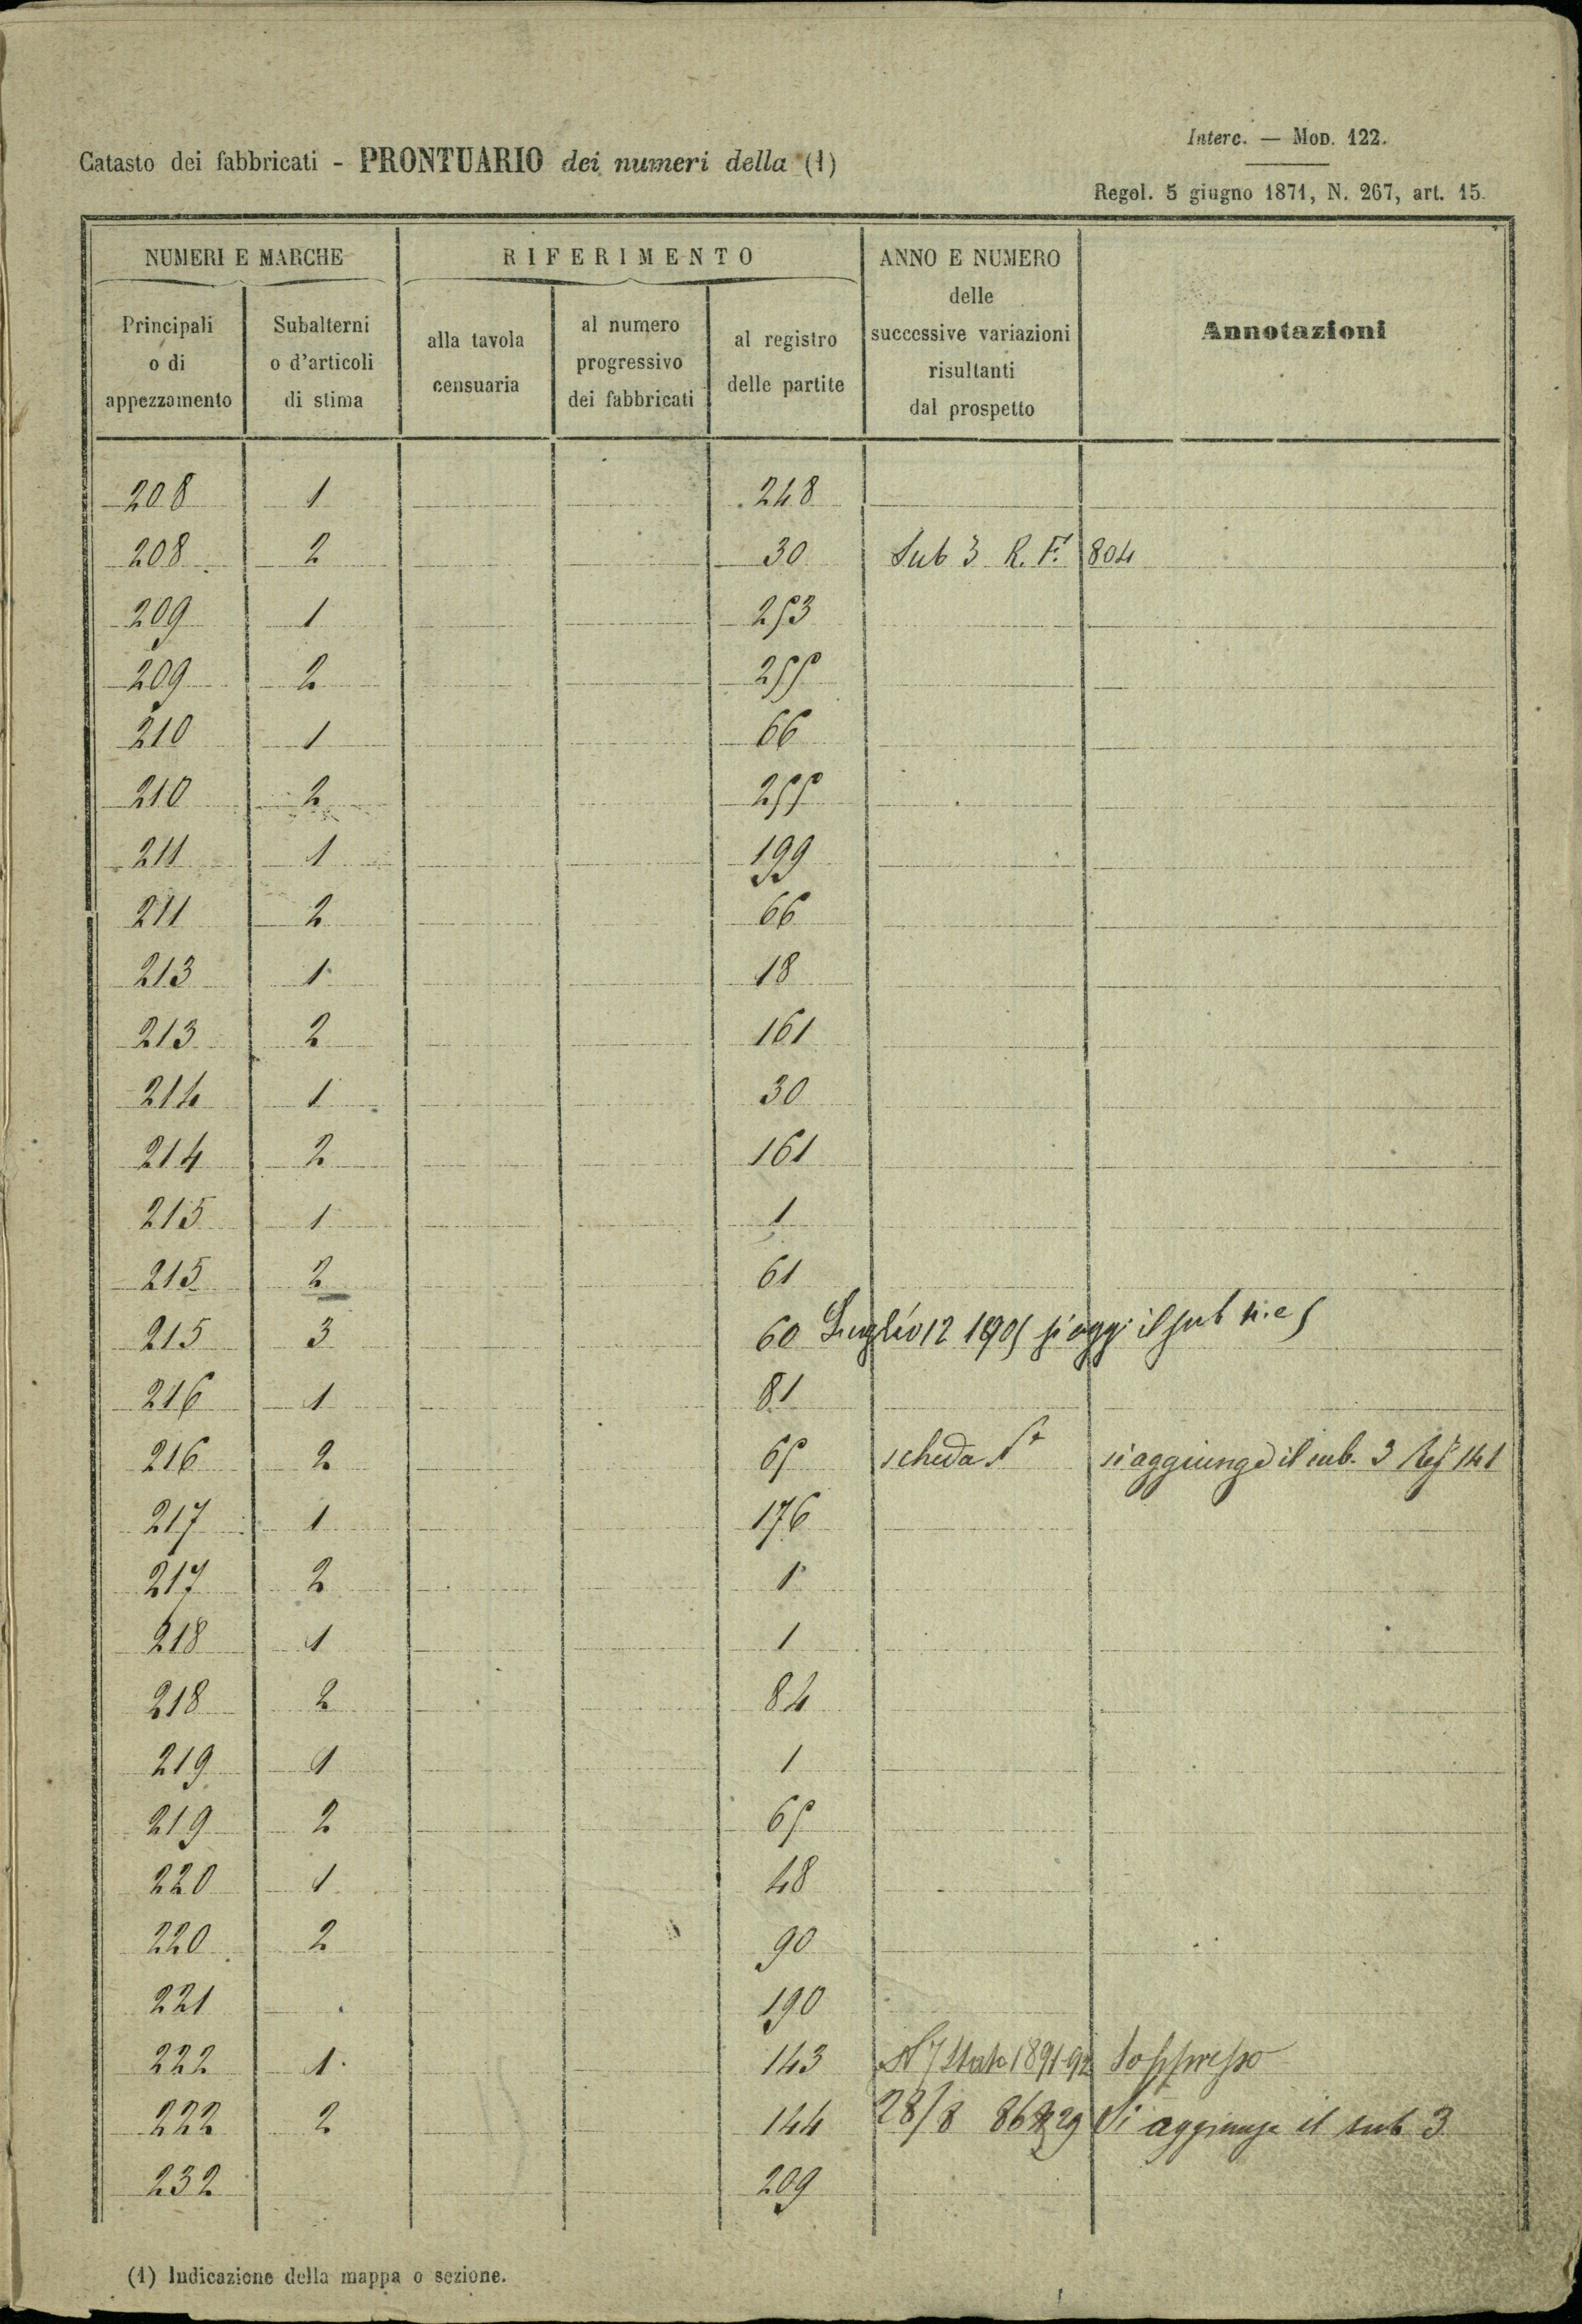 Interc. — Mod. 122.
Catasto dei fabbricati - PRONTUARIO dei numeri della (1)
Regol. 5 giugno 1871, N. 267, art. 15.
NUMERI E MARCHE RIFERIMENTO ANNO E NUMERO delle successive variazioni risultanti dal prospetto Annotazioni
Principali o di appezzamento Subalterni o d'articoli di stima alla tavola censuaria al numero progressivo dei fabbricati al registro delle partite
208 1 248
208 2 30 Sub 3 R. F. 804
209 1 253
209 2 255
210 1 66
210 2 255
211 1 199
211 2 66
213 1 18
213 2 161
214 1 30
214 2 161
215 1 1
215 2 61
215 3 60 Luglio 12 1905 si agg: il sub 4. e 5
216 1 81
216 2 65 scheda si aggiunge il sub. 3 141
217 1 176
217 2 1
218 1 1
218 2 84
219 1 1
219 2 65
220 1 48
220 2 90
221 190
222 1 143 1891-92 Soppresso
222 2 144 28/8 86 29 Si aggiunge il sub 3
232 209
(1) Indicazione della mappa o sezione.